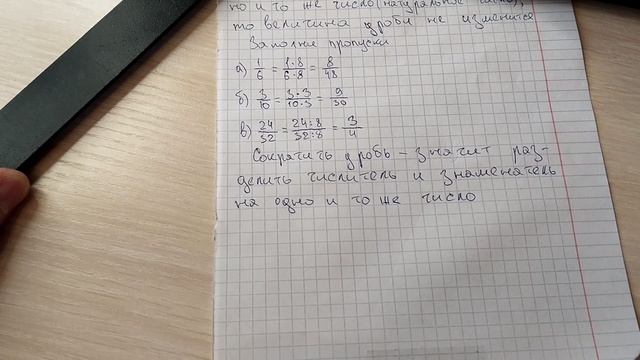 но и то же число (натуральное число),
то величина дроби не изменится
Заполни пропуски
а) 1/6 = 1·8/6·8 = 8/48
б) 3/10 = 3·3/10·3 = 9/30
в) 24/32 = 24:8/32:8 = 3/4
Сократить дробь – значит раз-
делить числитель и знаменатель
на одно и то же число